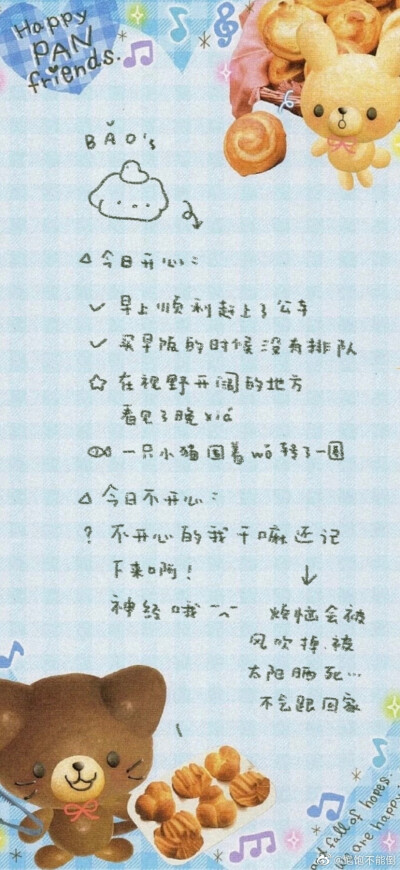 Happy
PAN
friends.
BǍO's
△今日开心：
✓ 早上顺利赶上了公车
✓ 买早饭的时候没有排队
☆ 在视野开阔的地方
看见了晚xiá
一只小猫围着wǒ转了一圈
△今日不开心：
? 不开心的我干嘛还记
下来啊！
神经哦
↓
烦恼会被
风吹掉.被
太阳晒死…
不会跟回家
full of hopes.
are happy